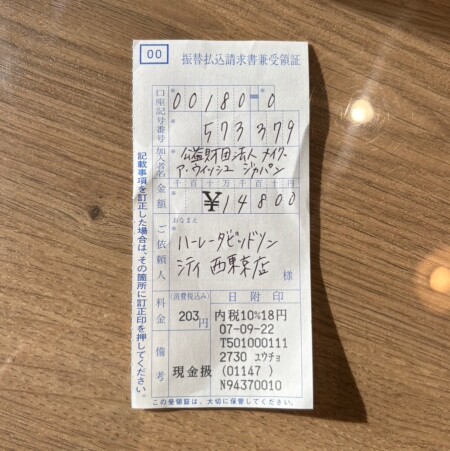 00
振替払込請求書兼受領証
口座記号番号
00180-0
573379
加入者名
公益財団法人 メイク・
ア・ウィッシュ ジャパン
金額
千百十万千百十円
¥14800
おなまえ
ご依頼人
ハーレーダビッドソン
シティ 西東京店
様
料金
(消費税込み)
203円
日附印
内税10%18円
07-09-22
T501000111
2730 ユウチョ
備考
現金扱
(01147 )
N94370010
この受領証は、大切に保管してください。
記載事項を訂正した場合は、その箇所に訂正印を押してください。